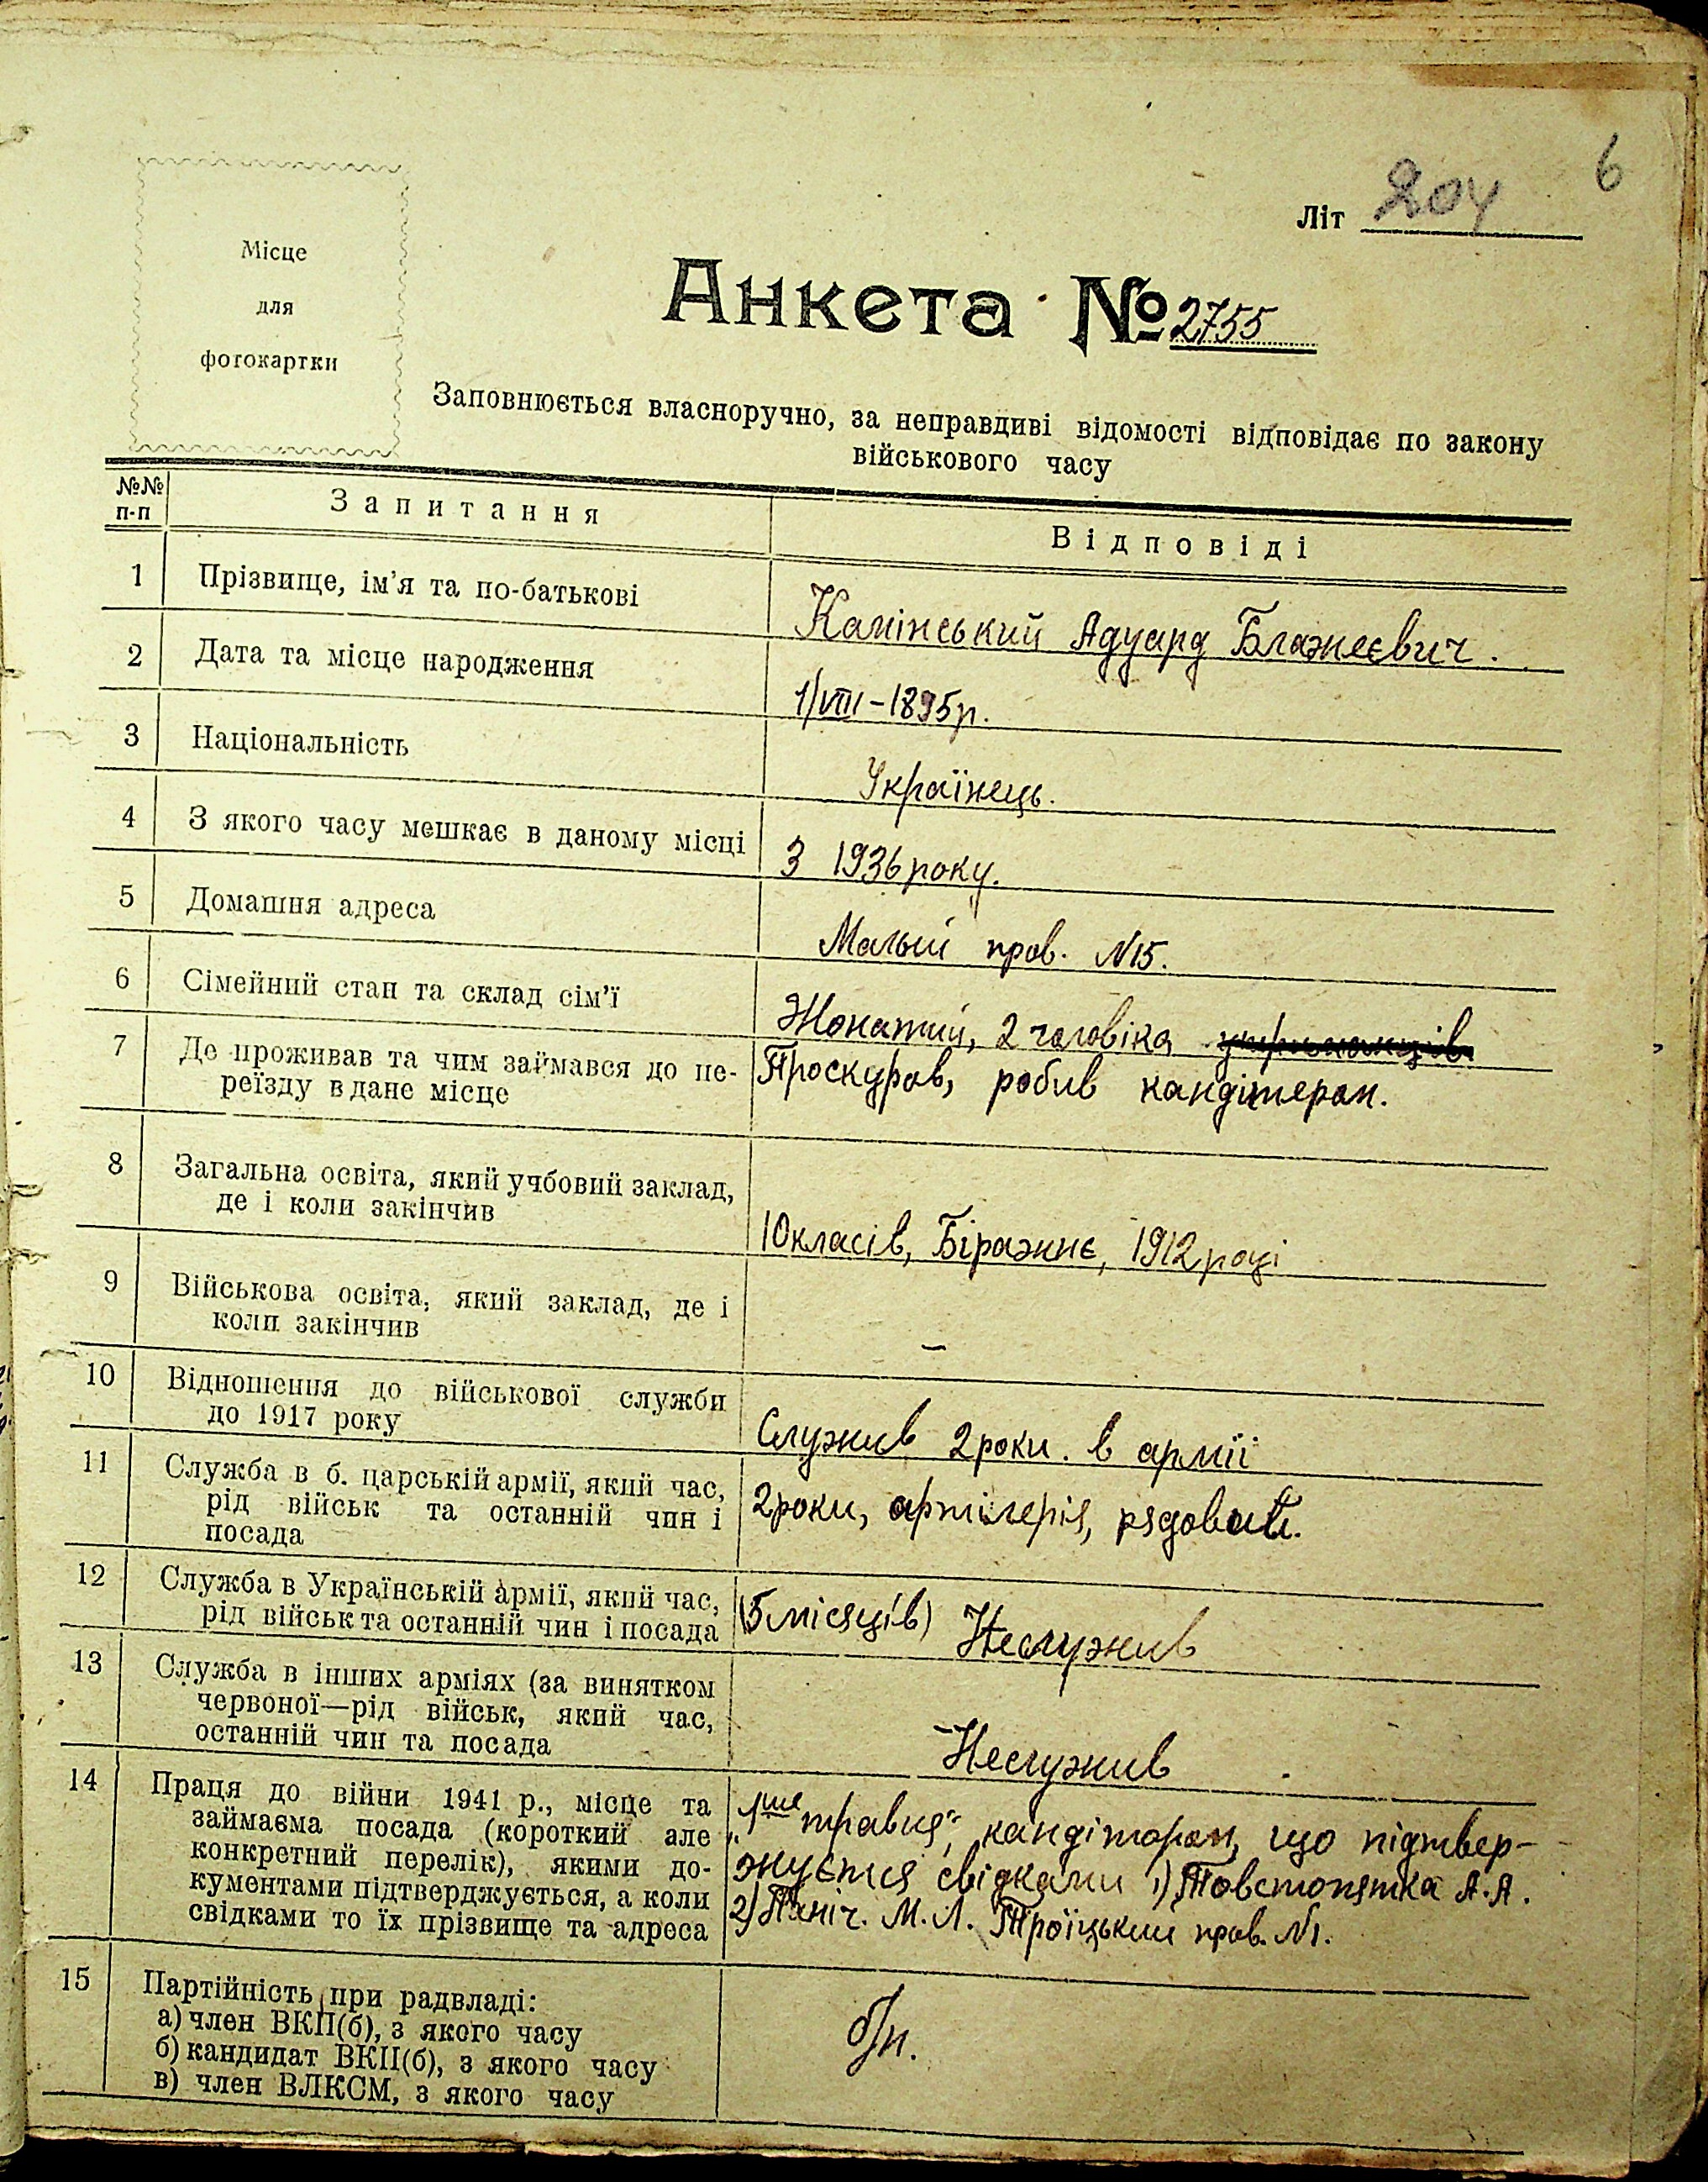 6
Літ 204
Місце
для
фотокартки
Анкета № 2755
Заповнюється власноручно, за неправдиві відомості відповідає по закону
військового часу
№№ п-п Запитання Відповіді
1 Прізвище, ім'я та по-батькові Камінський Адуард Блажеєвич.
2 Дата та місце народження 1/VIII-1895р.
3 Національність Українець.
4 З якого часу мешкає в даному місці З 1936 року.
5 Домашня адреса Малый пров. N15.
6 Сімейний стан та склад сім'ї Жонатий, 2 чаловіка
7 Де проживав та чим займався до пе- Проскуров, робив кандітером.
реїзду в дане місце
8 Загальна освіта, який учбовий заклад,
де і коли закінчив 10 класів, Біражнє, 1912 році
9 Військова освіта, який заклад, де і
коли закінчив –
10 Відношення до військової служби
до 1917 року Служив 2 роки. в армії
11 Служба в б. царській армії, який час, 2 роки, артілерія, рядовий.
рід військ та останній чин і
посада
12 Служба в Українській армії, який час, (5 місяців) Неслужив
рід військ та останній чин і посада
13 Служба в інших арміях (за винятком
червоної—рід військ, який час,
останній чин та посада Неслужив
14 Праця до війни 1941 р., місце та „1ше травня", кандітором, що підтвер-
займаєма посада (короткий але жуєтся свідками 1) Товстопятка А.А.
конкретний перелік), якими до- 2) Паніч. М.Л. Троїцький пров. N1.
кументами підтверджується, а коли
свідками то їх прізвище та адреса
15 Партійність при радвладі: б/п.
а) член ВКП(б), з якого часу
б) кандидат ВКП(б), з якого часу
в) член ВЛКСМ, з якого часу